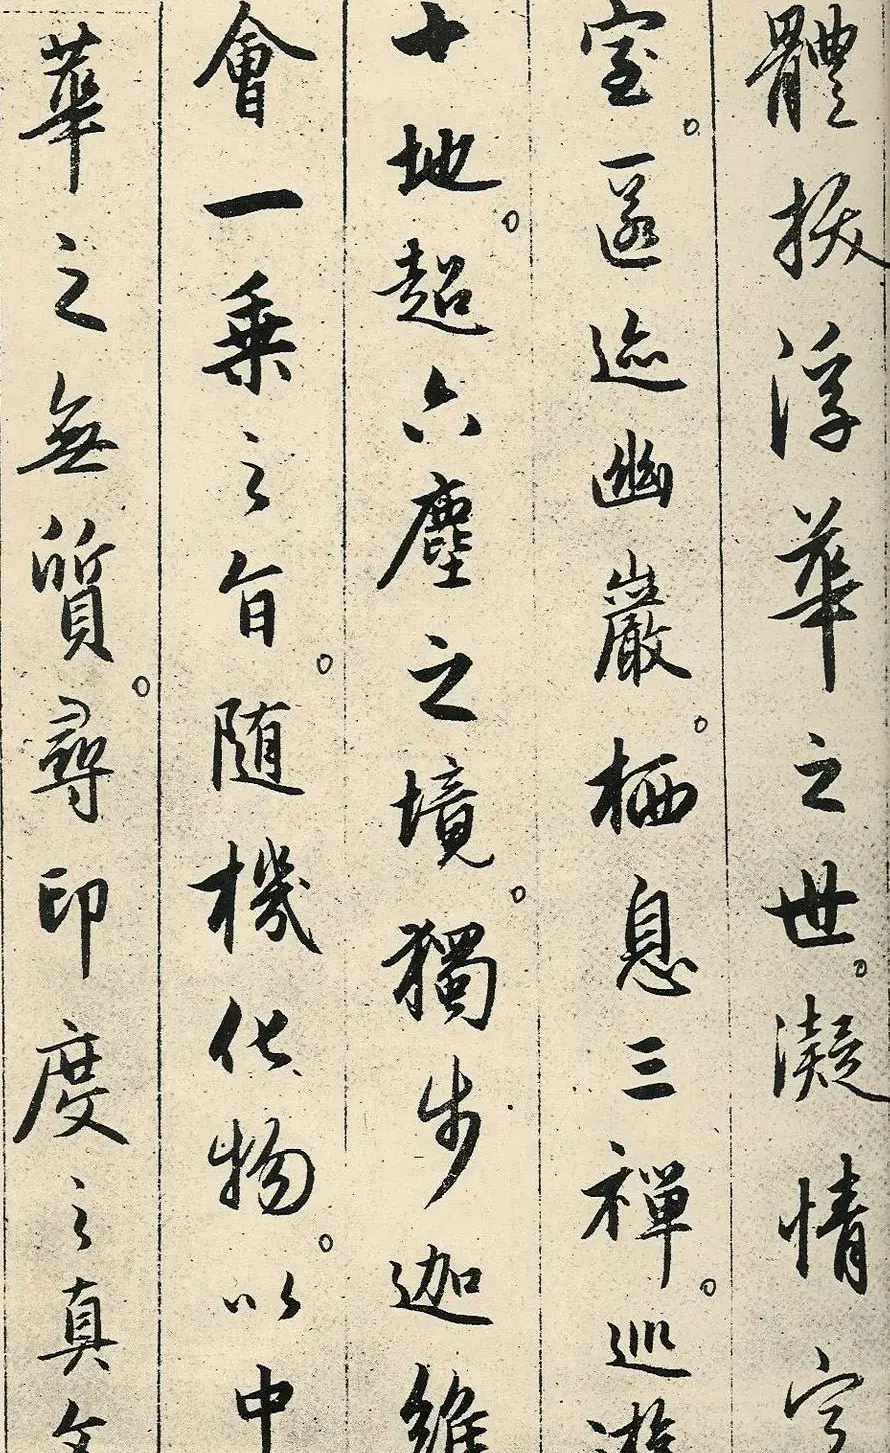 體拔浮華之世。凝情定
室。匿迹幽巖。栖息三禪。巡遊
十地。超六塵之境。獨步迦維
會一乘之旨。随機化物。以中
華之無質。尋印度之真文